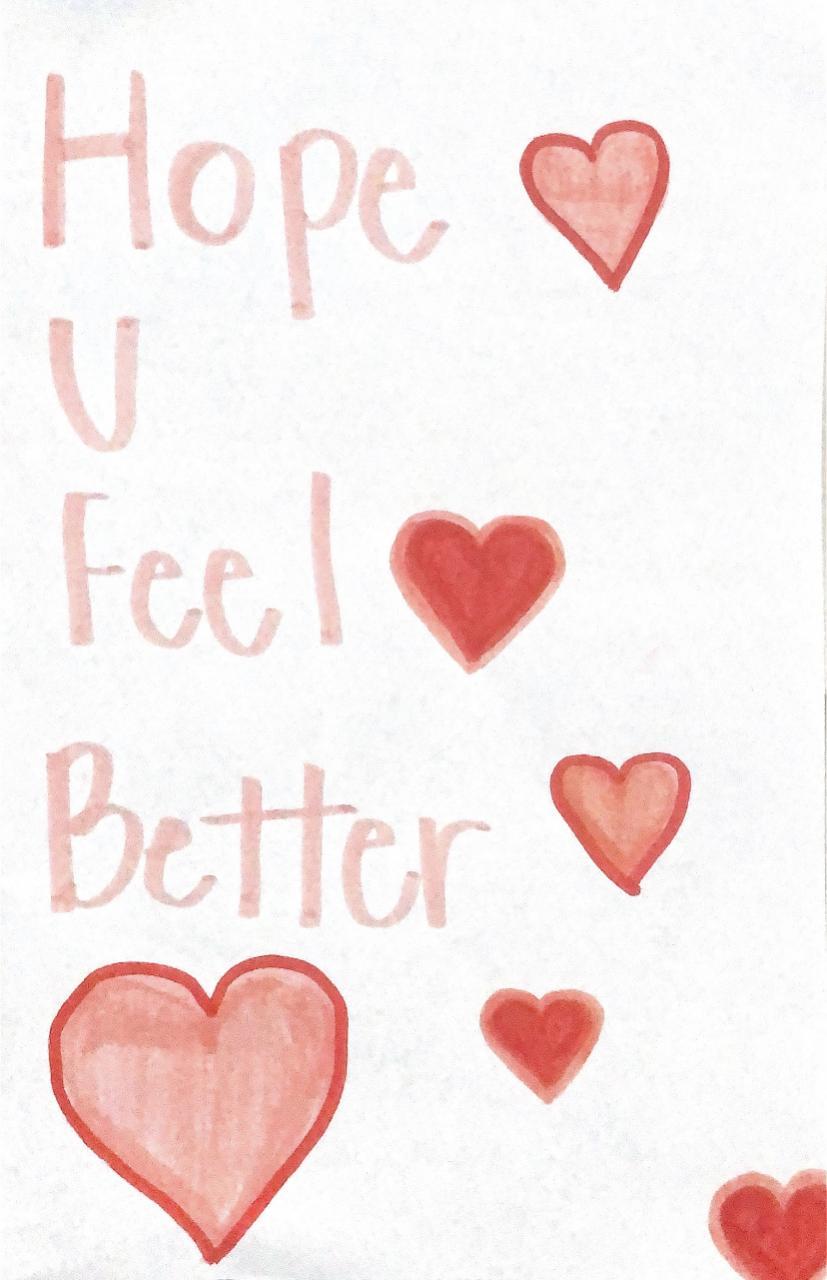 Hope
U
Feel
Better